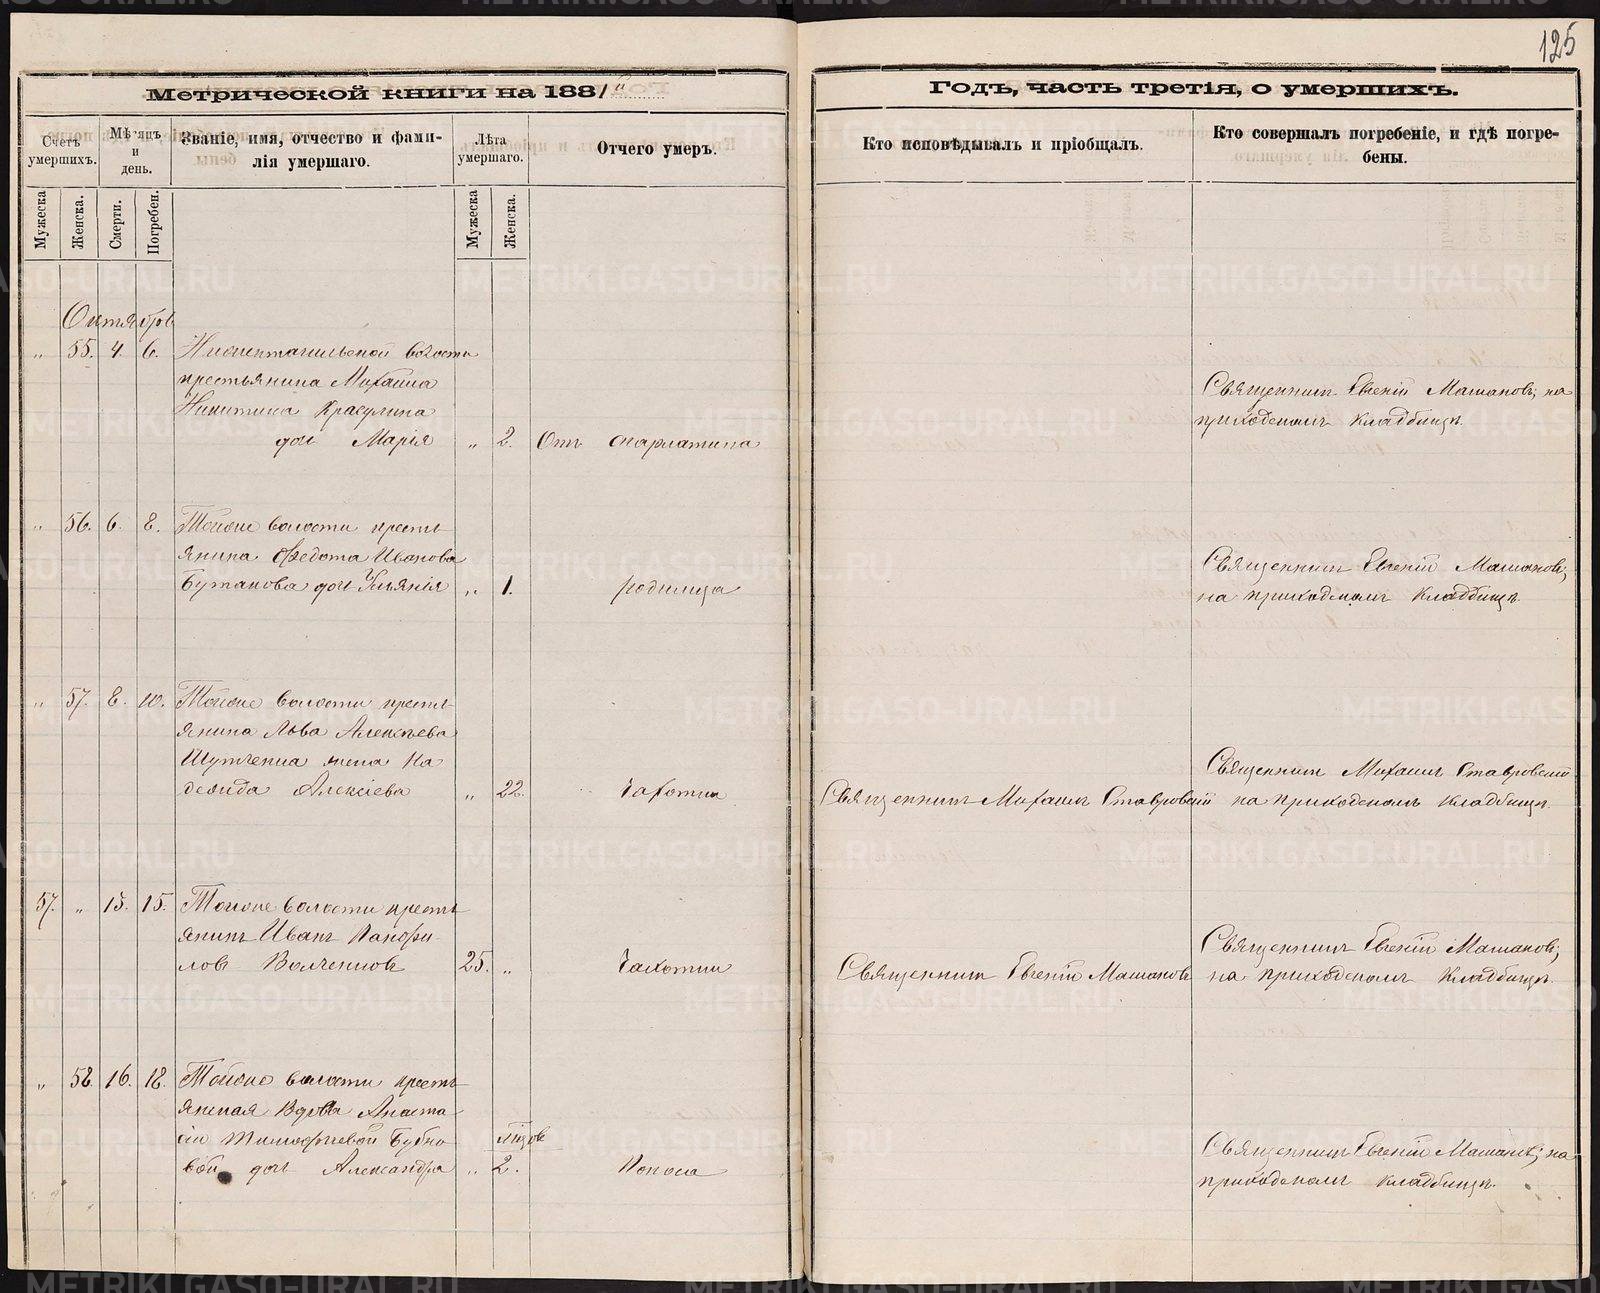 125
Метрической книги на 1881й
Годъ, часть третія, о умершихъ.
Счетъ умершихъ.
Мѣсяцъ и день.
Званіе, имя, отчество и фамилія умершаго.
Лѣта умершаго.
Отчего умеръ.
Кто исповѣдывалъ и пріобщалъ.
Кто совершалъ погребеніе, и гдѣ погребены.
Мужеска
Женска.
Смерти.
Погребен.
Мужеска
Женска.
Октябрь
„ 55. 4. 6. Нижнетагильской волости
крестьянина Михаила
Никитина Красулина
дочь Марія „ 2. Отъ скарлатина
Священникъ Евгеній Машановъ; на
приходскомъ кладбищѣ.
„ 56. 6. 8. Тойже волости кресть
янина Федота Иванова
Бутакова дочь Ульянія „ 1. родимца
Священникъ Евгеній Машановъ;
на приходскомъ кладбищѣ.
„ 57. 8. 10. Тойже волости кресть
янина Льва Алексѣева
жена На
дежда Алексіева „ 22. Чахотки
Священникъ Михаилъ Ставровскій
Священникъ Михаилъ Ставровскій
на приходскомъ кладбищѣ.
57. „ 13. 15. Тойже волости кресть
янинъ Иванъ Панфи
ловъ 25. „ Чахотки
Священникъ Евгеній Машановъ
Священникъ Евгеній Машановъ;
на приходскомъ кладбищѣ.
„ 58. 16. 18. Тойже волости кресть
янская вдова Анаста
сіи Тимофеевой Бубно
вой дочь Александра „ 2. Поноса
Священникъ Евгеній Машановъ; на
приходскомъ кладбищѣ.
METRIKI.GASO-URAL.RU